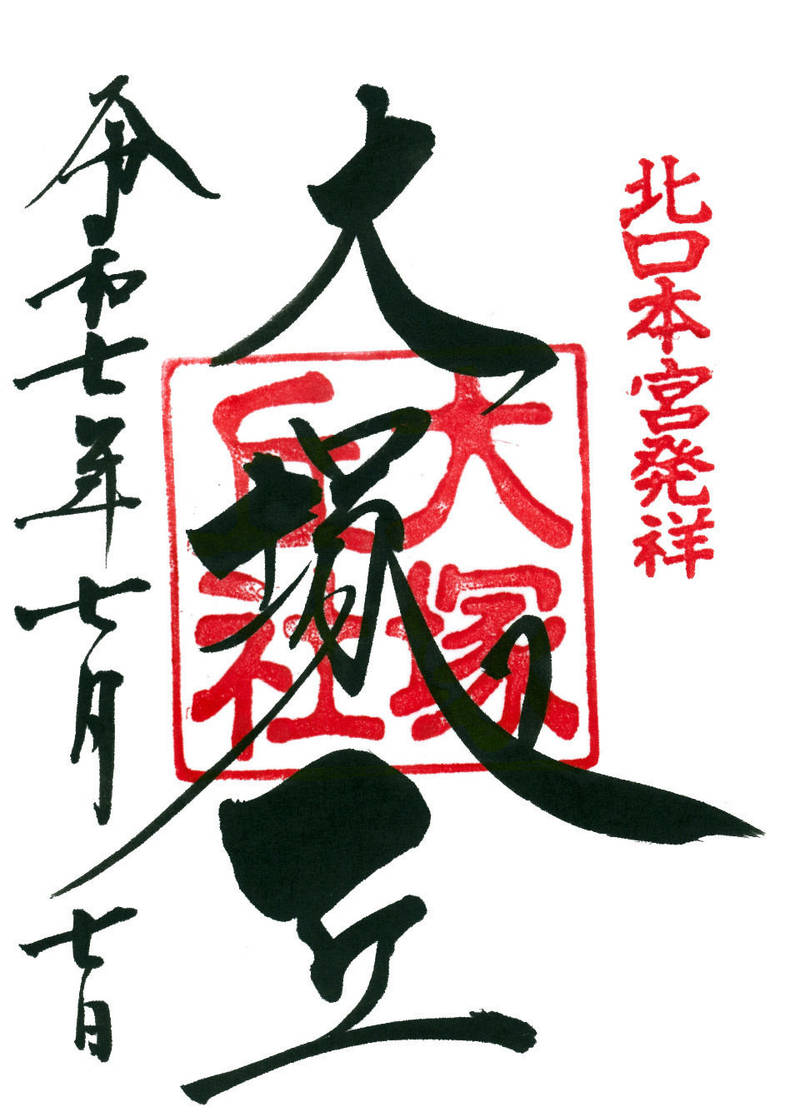 北口本宮発祥
大塚丘
大塚
丘社
令和七年七月七日